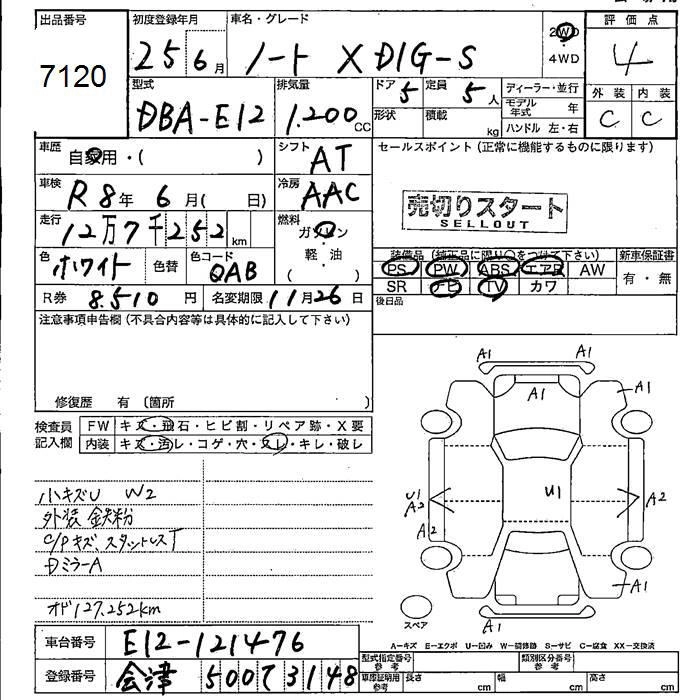 出品番号
7120
初度登録年月
25 6月
車名・グレード
ノート X DIG-S
2WD
4WD
評価点
4
外装 内装
C C
型式
DBA-E12
排気量
1.200 CC
ドア 5
定員 5人
形状
積載 kg
ディーラー・並行
モデル年式 年
ハンドル 左・右
車歴
自家用・( )
シフト
AT
セールスポイント (正常に機能するものに限ります)
売切りスタート
SELLOUT
車検
R8年 6月( 日)
冷房
AAC
走行
12万7千252km
燃料
ガソリン
軽・油
( )
色
ホワイト
色替
色コード
QAB
装備品 (純正品に限り○をつけて下さい)
新車保証書
PS PW ABS エアB AW
SR ナビ TV カワ
有・無
R券 8.510円
名変期限 11月26日
後日品
注意事項申告欄 (不具合内容等は具体的に記入して下さい)
修復歴 有 〔箇所 〕
検査員記入欄
FW キズ・飛石・ヒビ割・リペア跡・X要
内装 キズ・汚レ・コゲ・穴・スレ・キレ・破レ
小キズU W2
外装 鉄粉
C/Pキズ、スタットレスT
DミラーA
オド127.252km
A1 A1
A1
A1
U1
U1
A2
A2
A2
A1
A1
スペア
A−キズ E−エクボ U−凹み W−補修跡 S−サビ C−腐食 XX−交換済
車台番号
E12-121476
登録番号
会津 500 て 3148
型式指定番号 参考
類別区分番号 参考
車庫証明用 参考
長さ cm
幅 cm
高さ cm